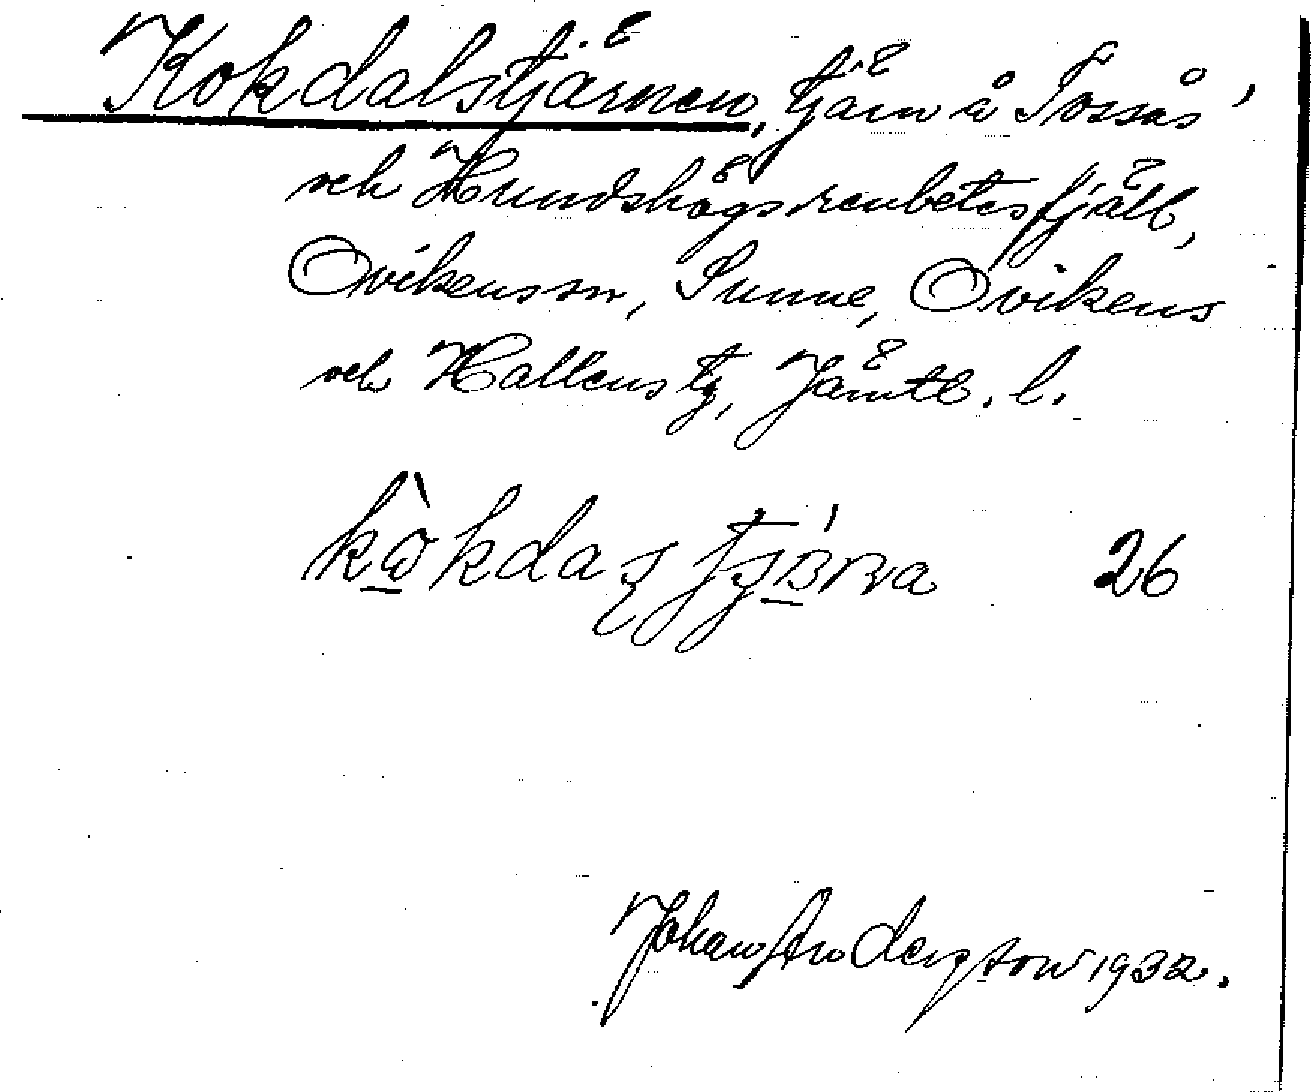 Kokdalstjärnen, tjärn å Tossås'
och Hundshögs renbetesfjäll,
Ovikens sn, Sunne, Ovikens
och Hallens tg, Jämtl. l.
26
Johan Anderzson 1932.